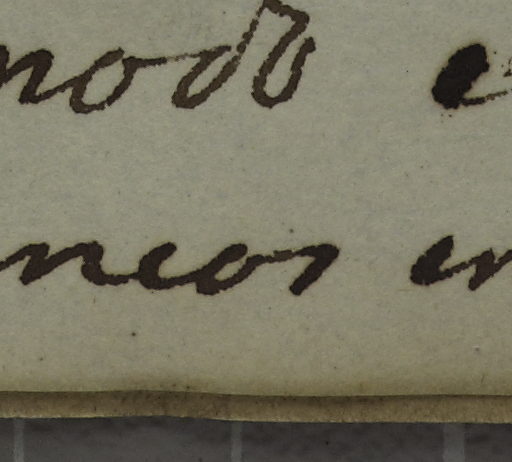 modo e
neos en